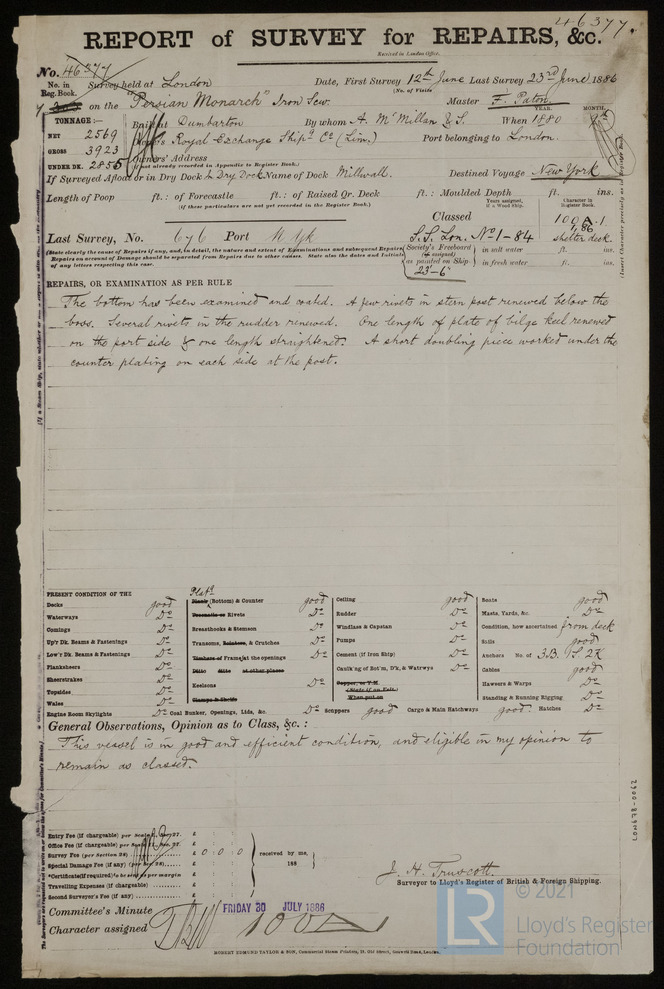 46377.
REPORT of SURVEY for REPAIRS, &c.
Received in London Office.
No. 46377
No. in Reg. Book. Survey held at London Date, First Survey 12th June Last Survey 23rd June 1886
(No. of Visits
on the "Persian Monarch" Iron Scw. Master F. Paton
TONNAGE:— Built at Dumbarton By whom A. McMillan & S. When 1880
YEAR. MONTH.
NET 2569
GROSS 3923 Owners Royal Exchange Shipg Co (Lim.) Port belonging to London.
UNDER DK. 2855 Owners' Address
(if not already recorded in Appendix to Register Book.)
If Surveyed Afloat or in Dry Dock In Dry Dock Name of Dock Millwall. Destined Voyage New York
Length of Poop ft.: of Forecastle ft.: of Raised Qr. Deck ft.: Moulded Depth ft. ins.
(if these particulars are not yet recorded in the Register Book.)
Years assigned, if a Wood Ship. Character in Register Book
Classed 100 A 1
Last Survey, No. 676 Port N. Yk S.S. Lon. No 1 - 84 shelter deck
(State clearly the cause of Repairs if any, and, in detail, the nature and extent of Examinations and subsequent Repairs. Repairs on account of Damage should be separated from Repairs due to other causes. State also the dates and Initials of any letters respecting this case.
Society's Freeboard (if assigned) as painted on Ship 23'-6"
in salt water ft. ins.
in fresh water ft. ins.
REPAIRS, OR EXAMINATION AS PER RULE
The bottom has been examined and coated. A few rivets in stern post renewed below the
boss. Several rivets in the rudder renewed. One length of plate of bilge keel renewed
on the port side & one length straightened. A short doubling piece worked under the
counter plating on each side at the post.
PRESENT CONDITION OF THE
Decks good
Waterways Do
Comings Do
Up'r Dk. Beams & Fastenings Do
Low'r Dk. Beams & Fastenings Do
Planksheers Do
Sheerstrakes Do
Topsides Do
Wales Do
Engine Room Skylights Do
Platg (Bottom) & Counter good
Treenails or Rivets Do
Breasthooks & Stemson Do
Transoms, Pointers, & Crutches Do
Timbers of Frame at the openings Do
Ditto ditto at other places
Keelsons Do
Clamps & Shelfs
Coal Bunker, Openings, Lids, &c. Do
Ceiling good
Rudder Do
Windlass & Capstan Do
Pumps Do
Cement (if Iron Ship) Do
Caulk'ng of Bot'm, D'k, & Watrwys Do
Copper, or Y.M.
(State if on Felt)
When put on
Scuppers good
Cargo & Main Hatchways good
Boats good
Masts, Yards, &c. Do
Condition, how ascertained from deck
Sails good
Anchors No. of 3B. 1S. 2K
Cables good
Hawsers & Warps Do
Standing & Running Rigging Do
Hatches Do
General Observations, Opinion as to Class, &c.:
This vessel is in good and efficient condition, and eligible in my opinion to
remain as classed.
Entry Fee (if chargeable) £
Office Fee (if chargeable) £
Survey Fee (per Section 28) £ 0 . 0 . 0
Special Damage Fee (if any) £
*Certificate (if required) £
Travelling Expenses (if chargeable) £
Second Surveyor's Fee (if any) £
received by me,
188
J. H. Truscott.
Surveyor to Lloyd's Register of British & Foreign Shipping.
Committee's Minute FRIDAY 30 JULY 1886
Character assigned 100 A
ROBERT EDMUND TAYLOR & SON, Commercial Steam Printers, 19, Old Street, Goswell Road, London.
LON678-0062
LR
© 2021
Lloyd's Register
Foundation